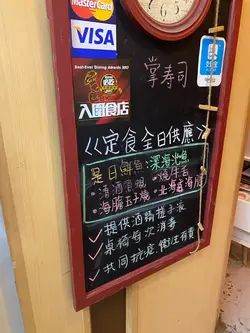 MasterCard
VISA
Best-Ever Dining Awards 2017
入圍食店
掌寿司
《定食全日供應》
是日鮮魚:深海池魚
・清酒煮蜆・燒牛舌
・海膽玉子燒・北海道海膽
✓提供酒精搓手液
✓桌椅每次消毒
✓共同抗疫,衛生有責